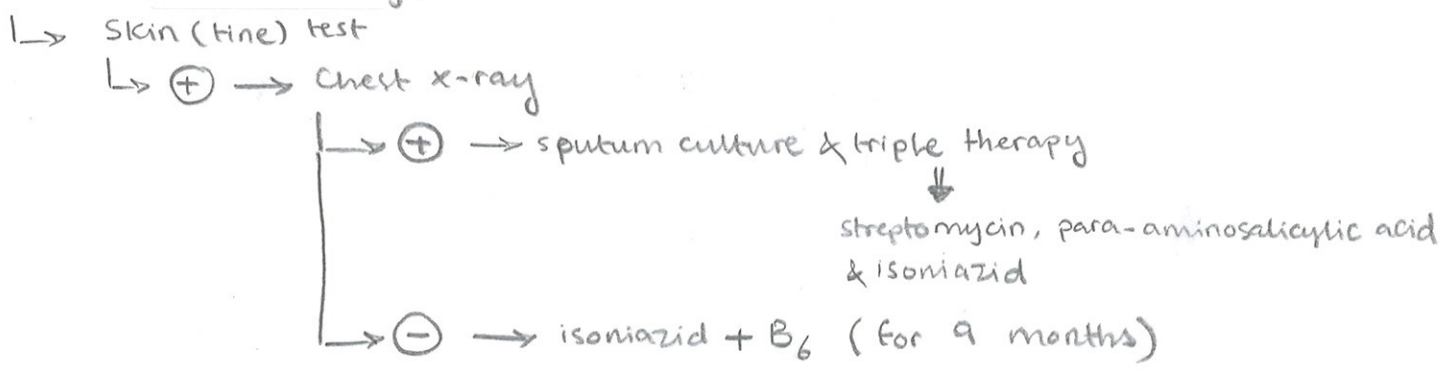 ↳ Skin (tine) test
↳ ⊕ → Chest x-ray
↳ ⊕ → sputum culture & triple therapy
⇓
streptomycin, para-aminosalicylic acid
& isoniazid
↳ ⊖ → isoniazid + B₆ (for 9 months)